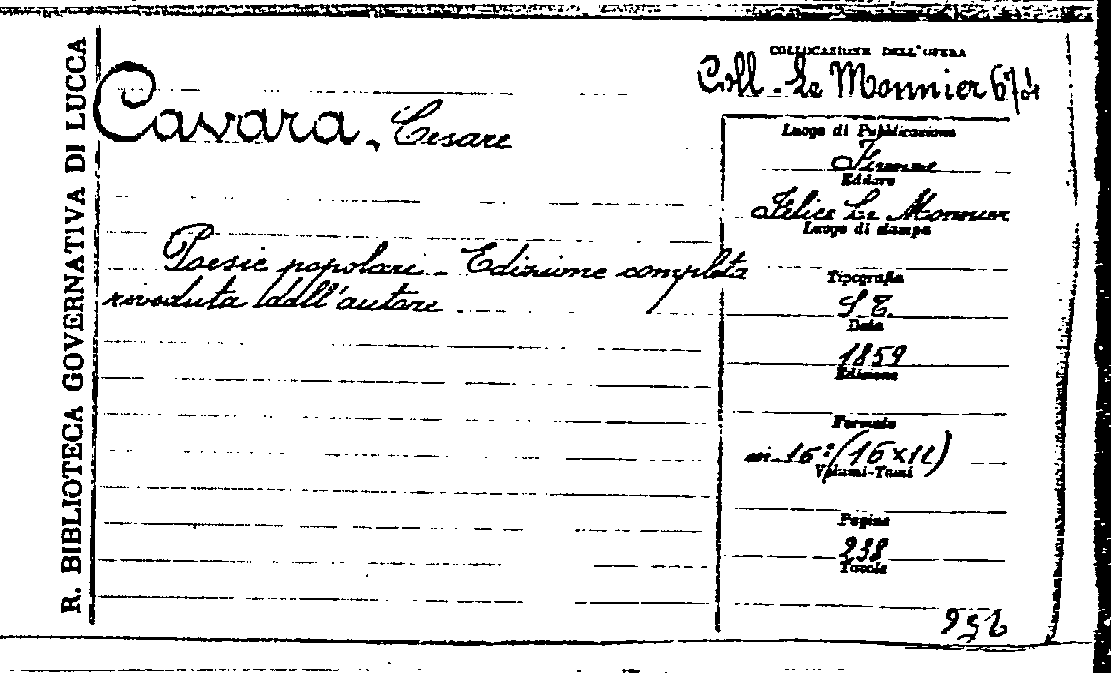 R. BIBLIOTECA GOVERNATIVA DI LUCCA
COLLOCAZIONE DELL'OPERA
Coll. Le Monnier 674
Cavara, Cesare
Poesie popolari - Edizione completa
riveduta dall'autore
Luogo di Pubblicazione
Firenze
Editore
Felice Le Monnier
Luogo di stampa
Tipografia
S. T.
Data
1859
Edizione
Formato
in-16° (16×11)
Volumi-Tomi
Pagine
238
Tavole
956